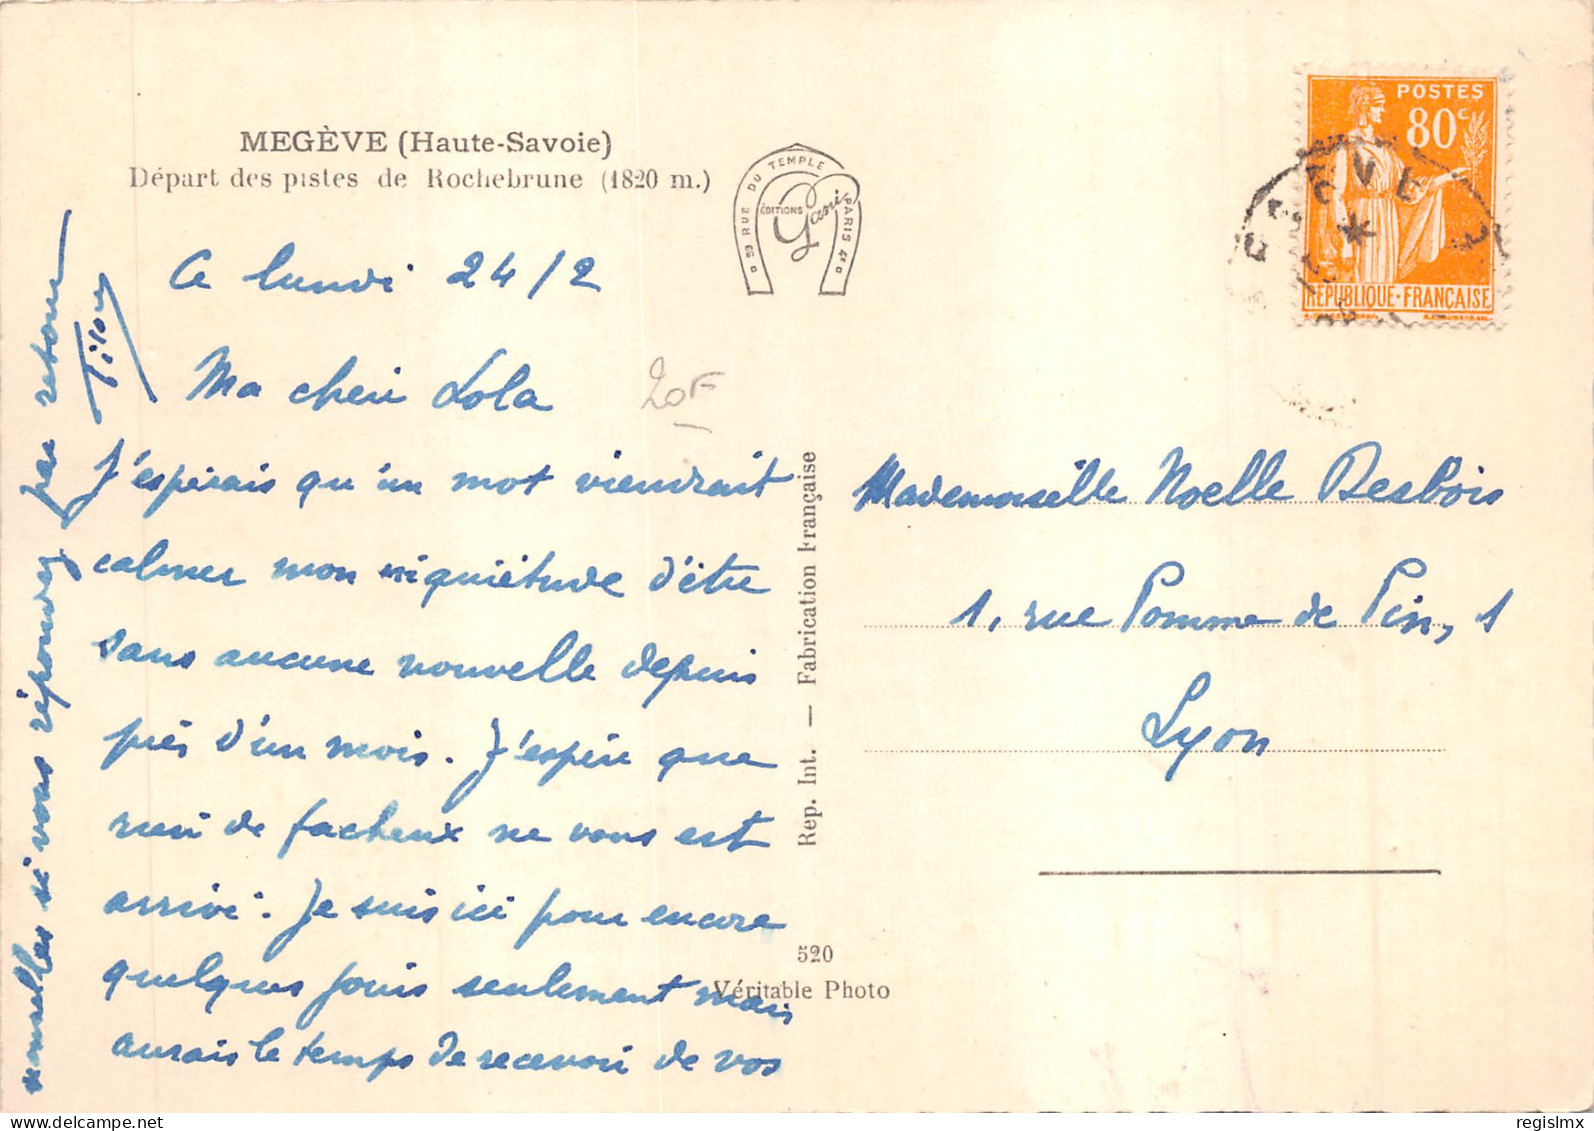 MEGÈVE (Haute-Savoie)
Départ des pistes de Rochebrune (1820 m.)
59 RUE DU TEMPLE PARIS 4e
ÉDITIONS
Gani
POSTES
80c
RÉPUBLIQUE·FRANÇAISE
Ce lundi 24/2
20F
Ma cheri Lola
J'espérais qu'un mot viendrait
calmer mon inquiétude d'être
sans aucune nouvelle depuis
près d'un mois. J'espère que
rien de facheux ne vous est
arrivé. Je suis ici pour encore
quelques jours seulement mais
aurais le temps de recevoir de vos
nouvelles si vous répondez par retour
Rep. Int. — Fabrication Française
520
Véritable Photo
Mademoiselle Noelle Desbois
1, rue Pomme de Pin, 1
Lyon
regislmx